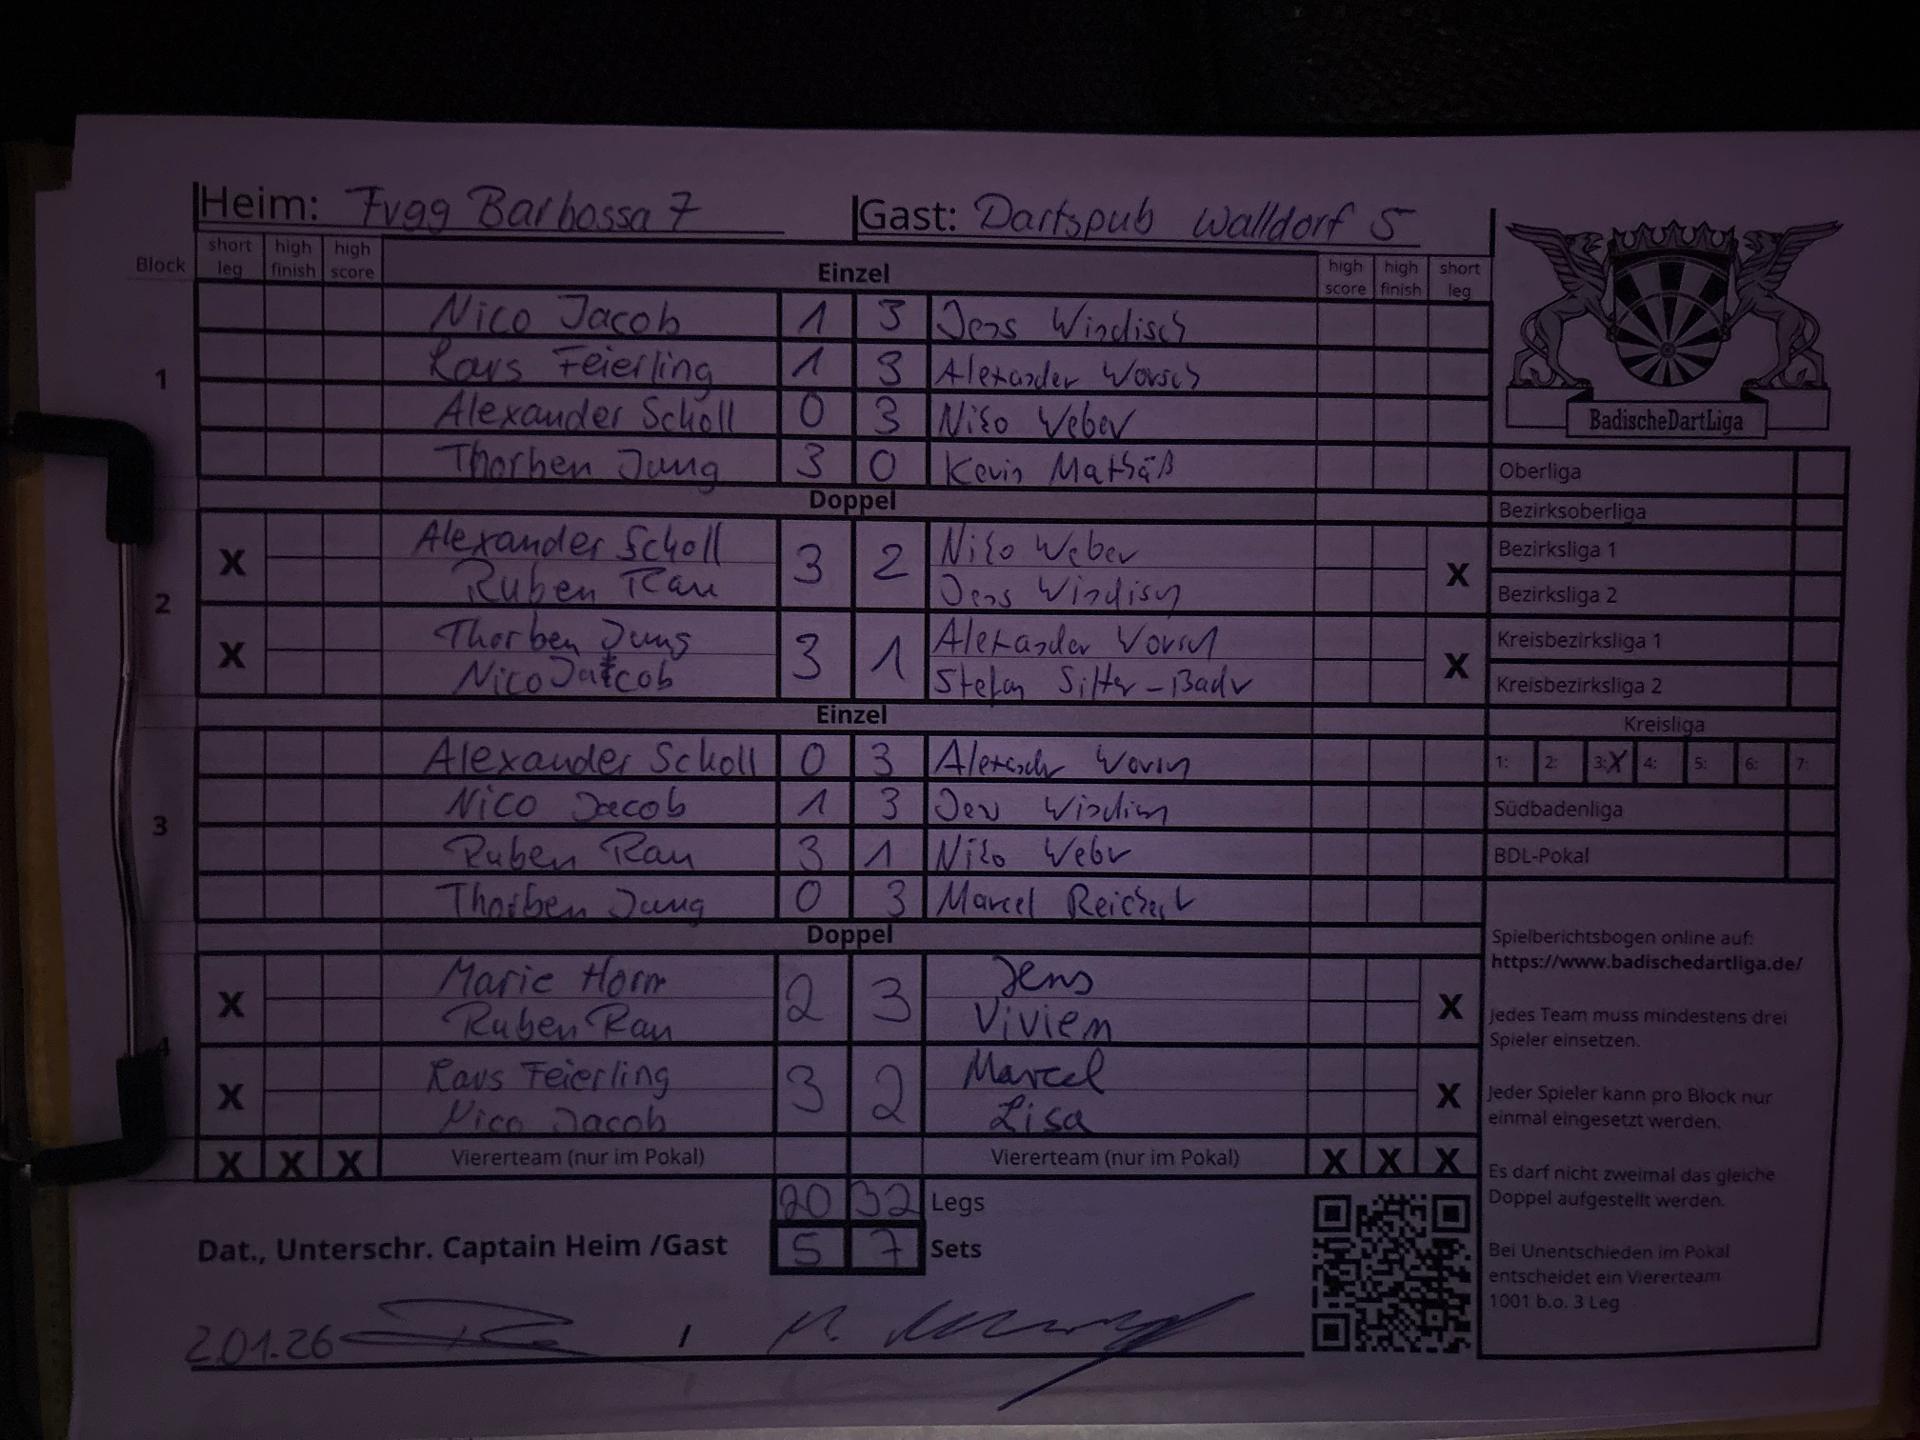 Heim: Fvgg Barbossa 7 Gast: Dartspub Walldorf 5
Block short leg high finish high score Einzel high score high finish short leg
Nico Jacob 1 3 Jens Windisch
1 Lars Feierling 1 3 Alexander Worsch
Alexander Scholl 0 3 Niko Weber
Thorben Jung 3 0 Kevin Mathäß
Doppel
2 X Alexander Scholl 3 2 Niko Weber X
Ruben Rau Jens Windisch
X Thorben Jung 3 1 Alexander Worsch X
Nico Jacob Stefan
Einzel
Alexander Scholl 0 3 Alexander Worsch
3 Nico Jacob 1 3 Jens Windisch
Ruben Rau 3 1 Niko Weber
Thorben Jung 0 3 Marcel Reichert
Doppel
4 X Marie Horn 2 3 Jens X
Ruben Rau Vivien
X Lars Feierling 3 2 Marcel X
Nico Jacob Lisa
X X X Viererteam (nur im Pokal) Viererteam (nur im Pokal) X X X
20 32 Legs
Dat., Unterschr. Captain Heim /Gast 5 7 Sets
2.01.26
BadischeDartLiga
Oberliga
Bezirksoberliga
Bezirksliga 1
Bezirksliga 2
Kreisbezirksliga 1
Kreisbezirksliga 2
Kreisliga
1: 2: 3:X 4: 5: 6: 7:
Südbadenliga
BDL-Pokal
Spielberichtsbogen online auf:
https://www.badischedartliga.de/
Jedes Team muss mindestens drei
Spieler einsetzen.
Jeder Spieler kann pro Block nur
einmal eingesetzt werden.
Es darf nicht zweimal das gleiche
Doppel aufgestellt werden.
Bei Unentschieden im Pokal
entscheidet ein Viererteam
1001 b.o. 3 Leg